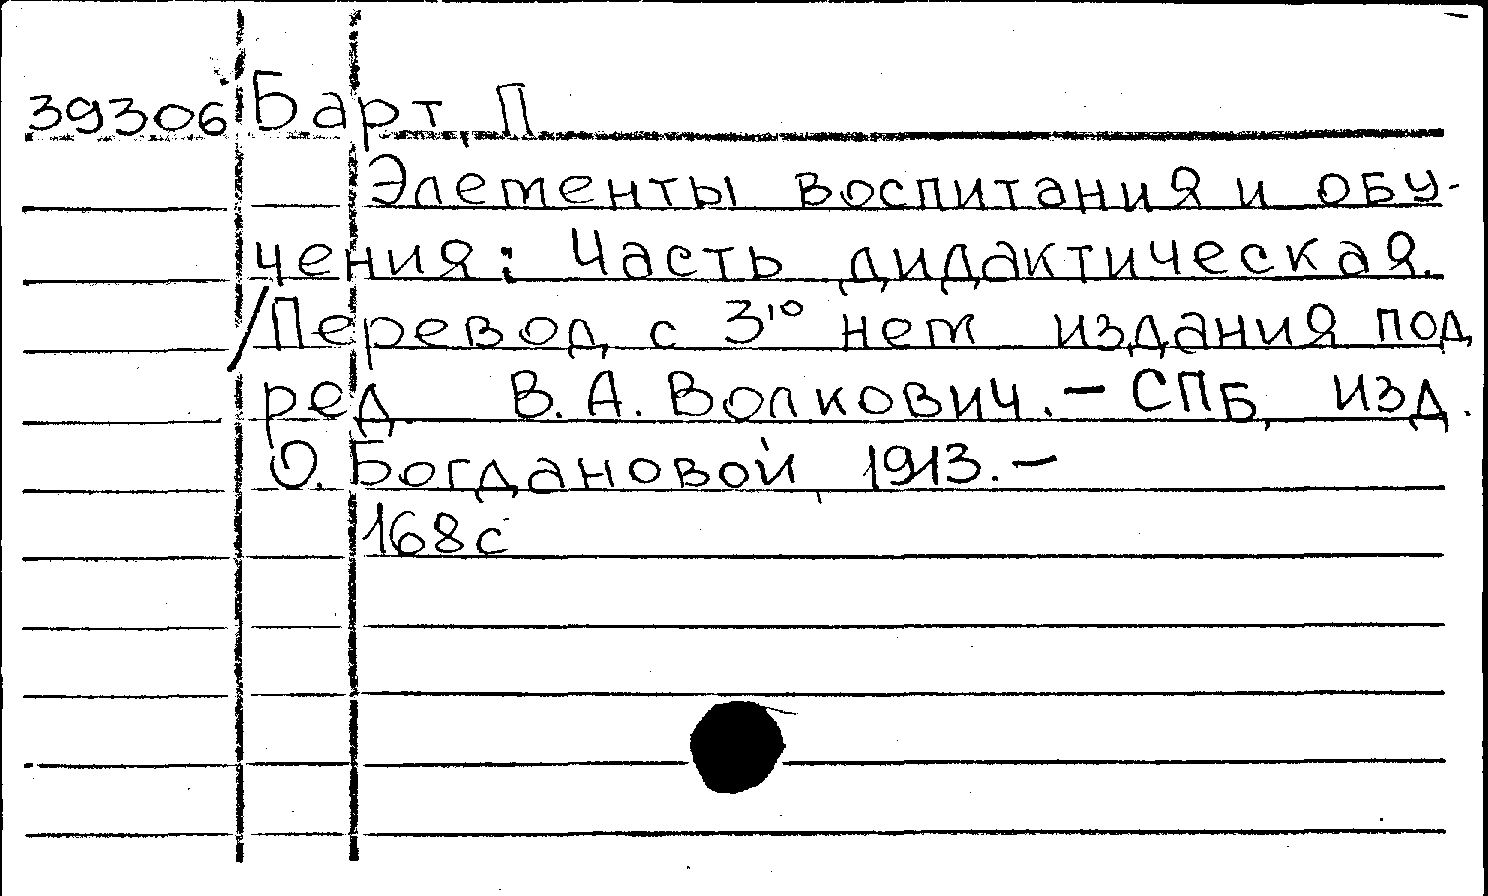 39306 Барт, П
Элементы воспитания и обу-
чения: Часть дидактическая.
/Перевод с 3го нем издания под
ред В. А. Волкович. – СПБ, изд.
О. Богдановой, 1913. –
168 с